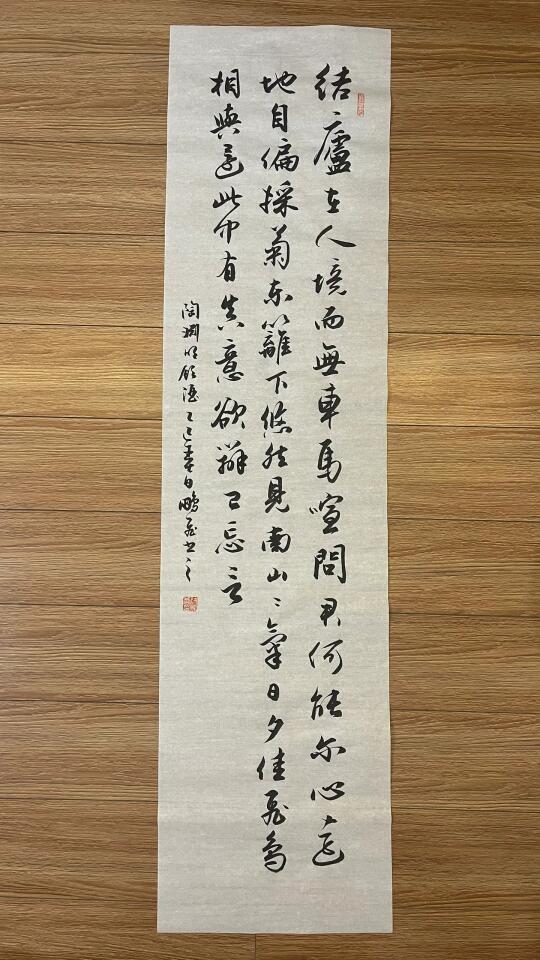 結廬在人境而無車馬喧問君何能尔心遠
地自偏採菊東籬下悠然見南山〻氣日夕佳飛鳥
相與還此中有真意欲辯已忘言
陶淵明飲酒乙巳春日鵬飛書之